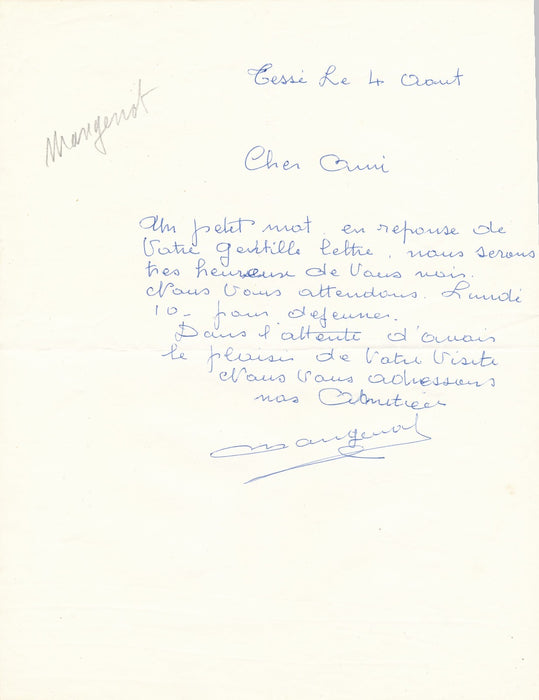 Tessé Le 4 Aout
Mangenot
Cher Ami
Un petit mot en reponse de
Votre gentille lettre, nous serons
tres heureux de Vous voir.
Nous Vous attendons. Lundi
10 - pour dejeuner.
Dans l'attente d'avoir
le plaisir de Votre Visite
Nous Vous adressons
nos Amitiées
Mangenot